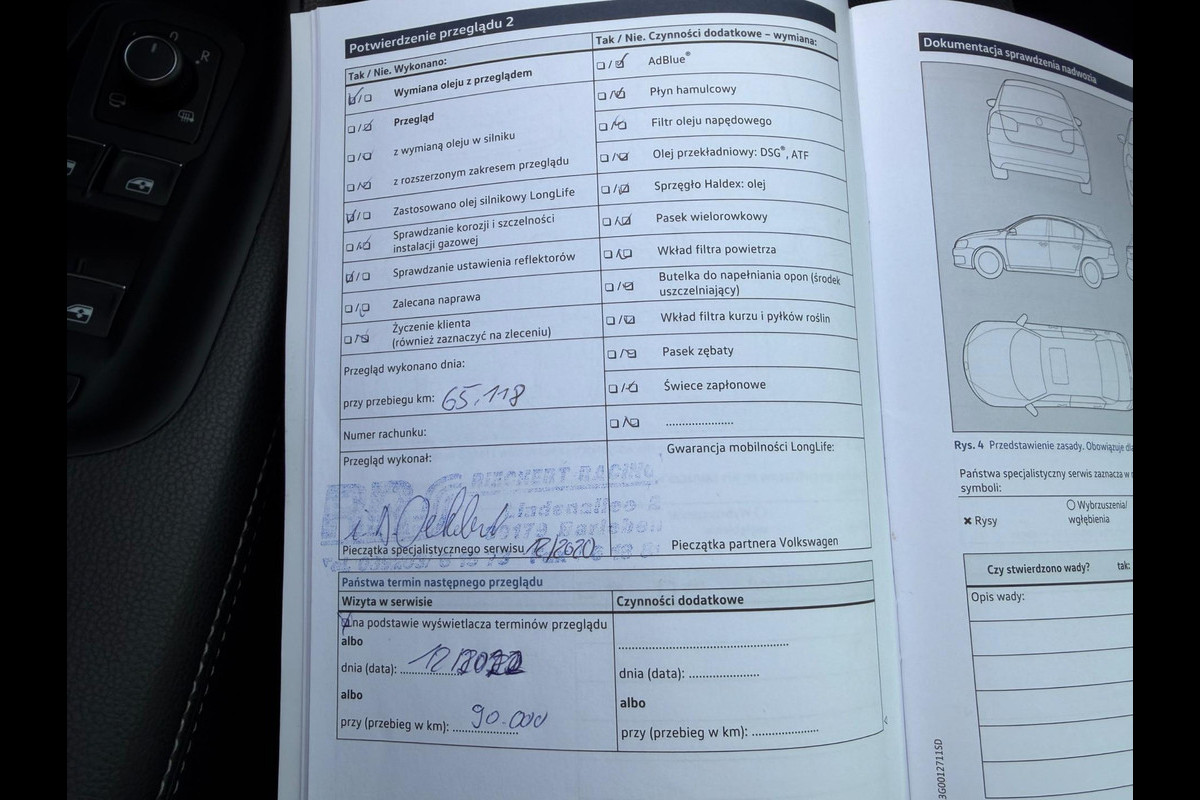 Potwierdzenie przeglądu 2
Tak / Nie. Wykonano:
Wymiana oleju z przeglądem
Przegląd
z wymianą oleju w silniku
z rozszerzonym zakresem przeglądu
Zastosowano olej silnikowy LongLife
Sprawdzanie korozji i szczelności
instalacji gazowej
Sprawdzanie ustawienia reflektorów
Zalecana naprawa
Życzenie klienta
(również zaznaczyć na zleceniu)
Przegląd wykonano dnia:
przy przebiegu km: 65.118
Numer rachunku:
Przegląd wykonał:
BIECKERT RACING
Lindenallee 2
39179 Barleben
Pieczątka specjalistycznego serwisu 12/2020
Tak / Nie. Czynności dodatkowe – wymiana:
AdBlue®
Płyn hamulcowy
Filtr oleju napędowego
Olej przekładniowy: DSG®, ATF
Sprzęgło Haldex: olej
Pasek wielorowkowy
Wkład filtra powietrza
Butelka do napełniania opon (środek
uszczelniający)
Wkład filtra kurzu i pyłków roślin
Pasek zębaty
Świece zapłonowe
Gwarancja mobilności LongLife:
Pieczątka partnera Volkswagen
Państwa termin następnego przeglądu
Wizyta w serwisie
na podstawie wyświetlacza terminów przeglądu
albo
dnia (data): 12/2022
albo
przy (przebieg w km): 90.000
Czynności dodatkowe
dnia (data):
albo
przy (przebieg w km):
Dokumentacja sprawdzenia nadwozia
Rys. 4 Przedstawienie zasady. Obowiązuje dla
Państwa specjalistyczny serwis zaznacza w
symboli:
× Rysy
Wybrzuszenia/
wgłębienia
Czy stwierdzono wady? tak:
Opis wady:
3G0012711SD
R